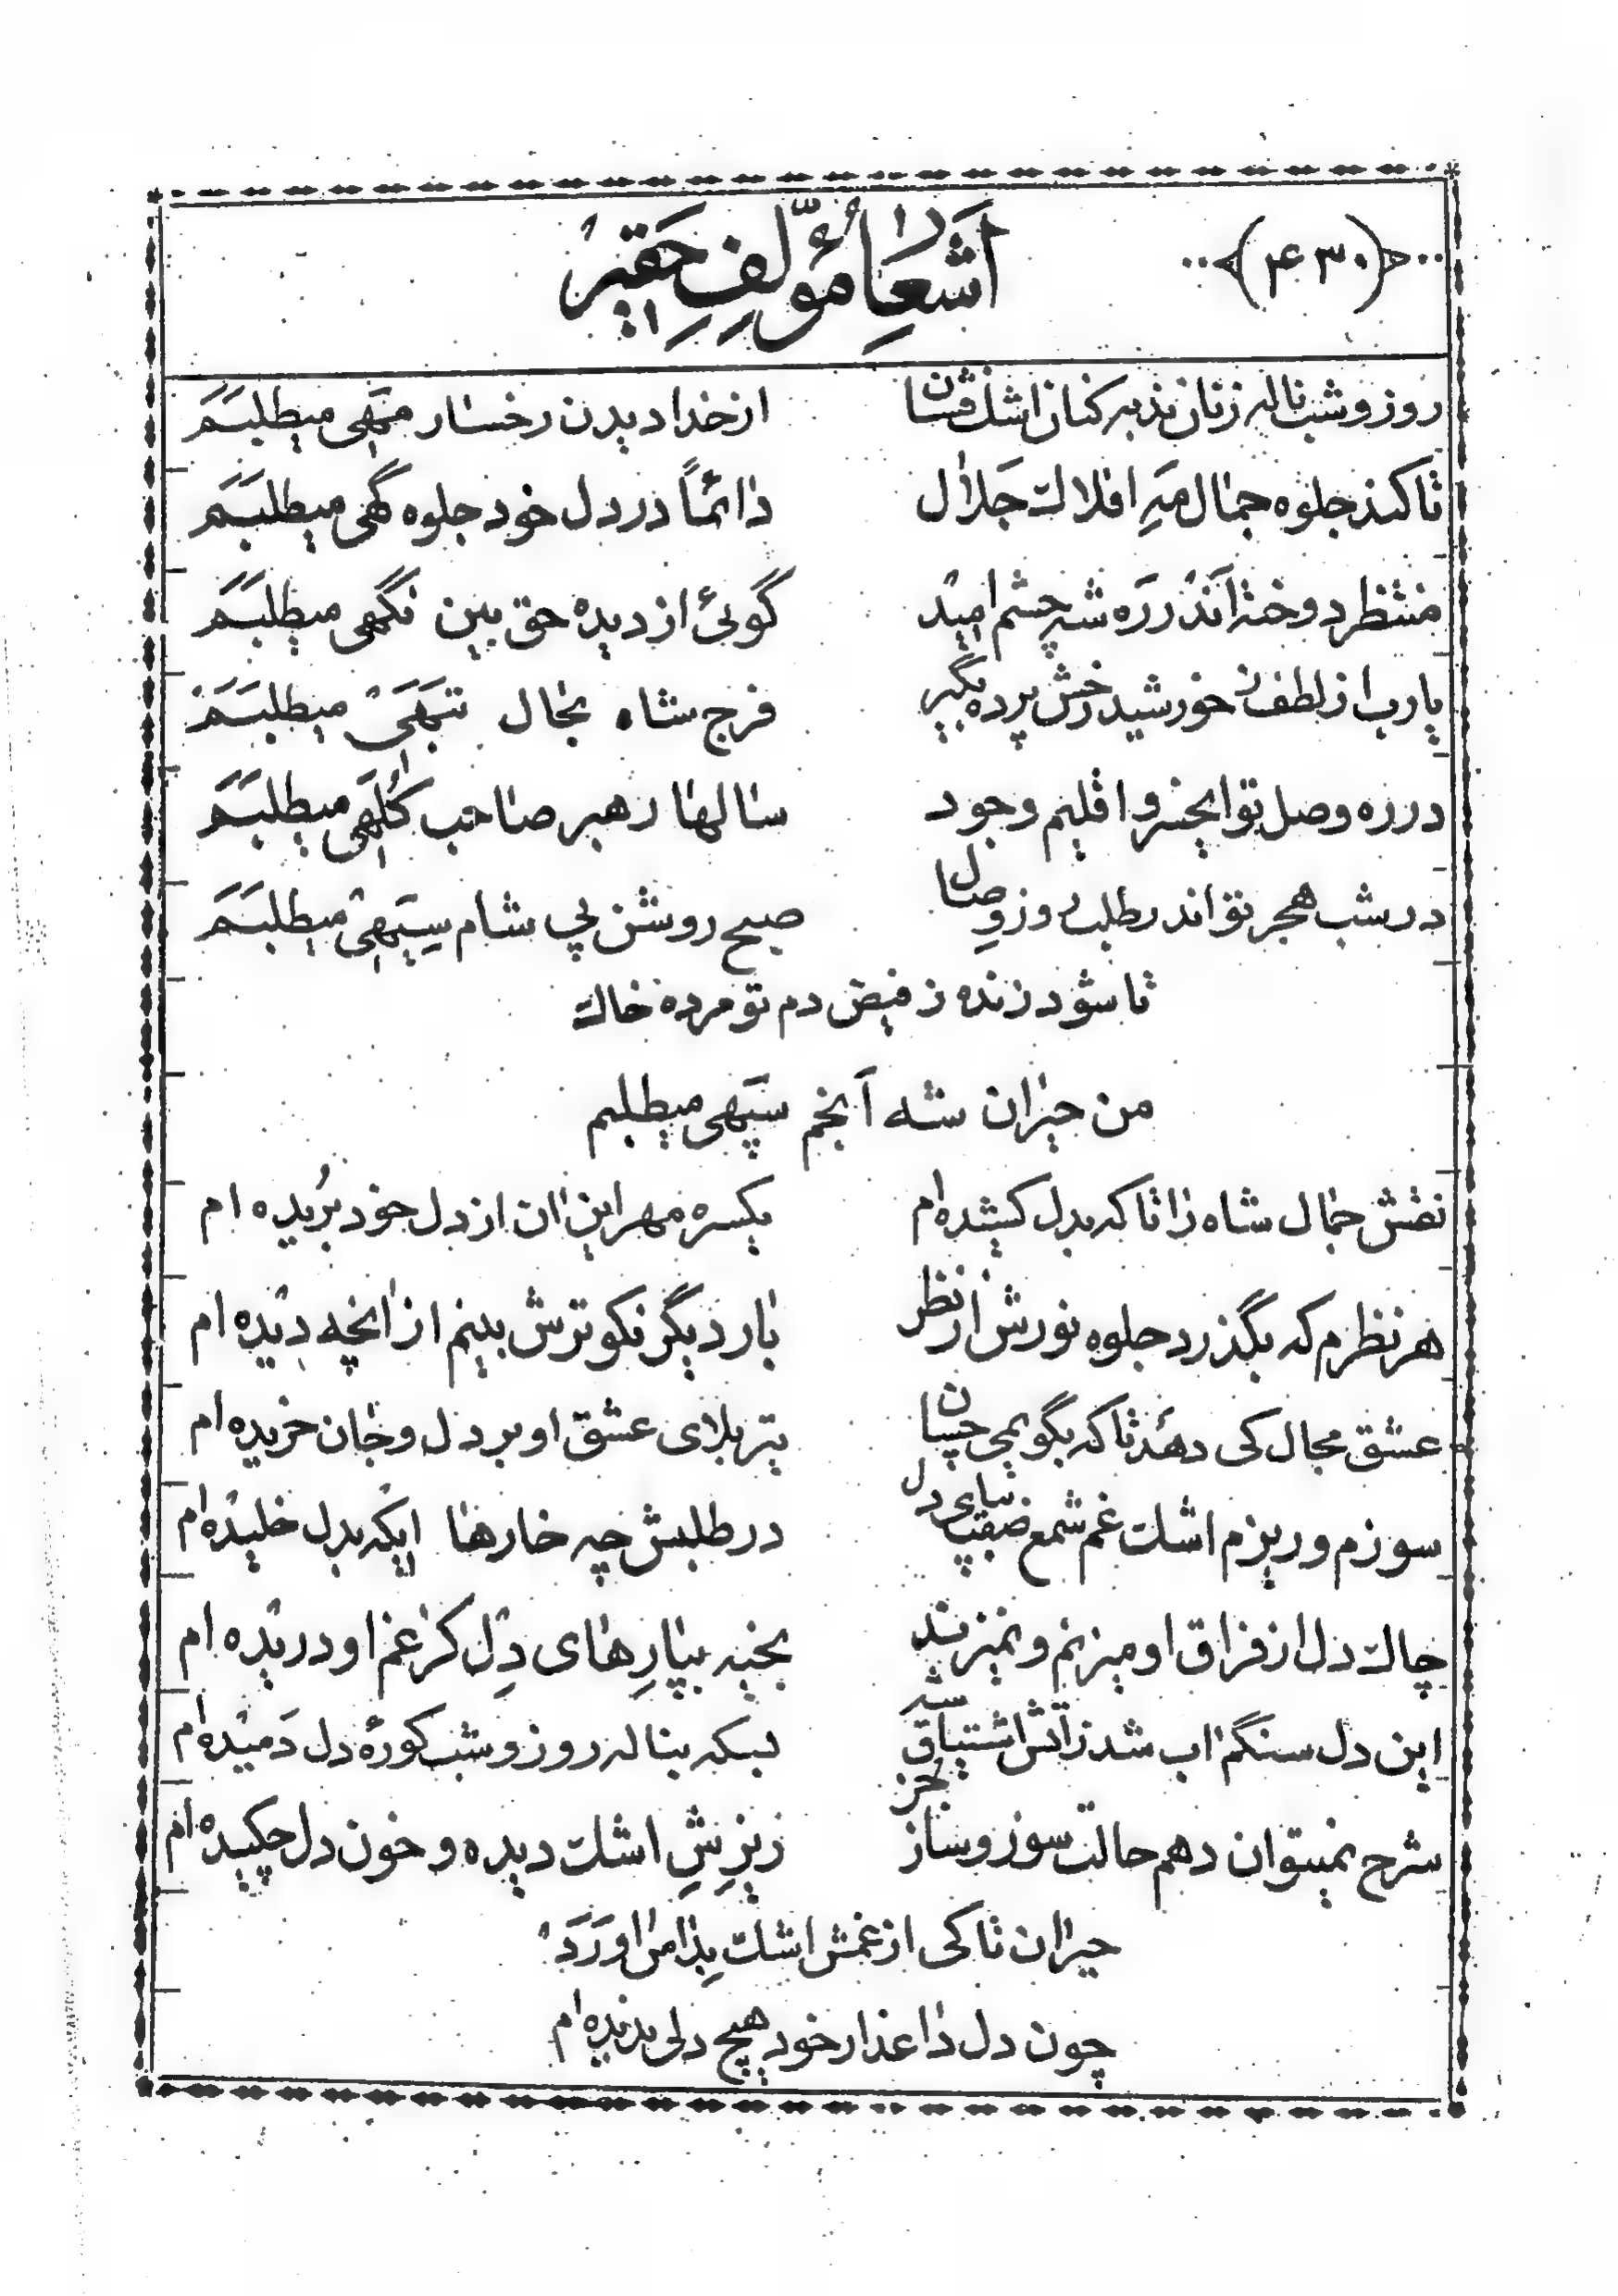 ﴿۴۳۰﴾
اَشعارِ مُؤلّفِ حَقیر
روز و شب ناله زنان ندبه کنان اشک فشان از خدا دیدن رخسار مَهی میطلبَم
تا کند جلوه جمال مَهِ افلاک جَلال دائماً در دل خود جلوه گهی میطلبَم
منتظر دوخته اَندر رَه شه چشم امید گوئی از دیده حق بین نگهی میطلبَم
یا رب از لطف ز خورشید رخش پرده بگیر فرج شاه بحال تبَهی میطلبَم
در ره وصل تو ایخسرو اقلیم وجود سالها رهبر صاحب کُلَهی میطلبَم
در شب هجر تو اندر طلب روز وِصال صبح روشن پی شام سِیَهی میطلبَم
تا شود زنده ز فیض دم تو مرده خاک
من حیران شه اَنجم سپَهی میطلبم
نقش جمال شاه را تا که بدل کشیده‌ام یکسره مهر این و ان از دل خود بُریده ام
هر نظرم که بگذرد جلوه نورش از نظر بار دیگر نکوترش بینم از انچه دیده ام
عشق مجال کی دهَد تا که بگویمی چسان تیر بلای عشق او بر دل و جان خریده ام
سوزم و ریزم اشک غم شمع صفت بپای دل در طلبش چه خارها ایکه بدل خلیده‌ام
چاک دل از فراق او میزنم و نمیزند بخیه بپارِهای دِل کز غم او دریده ام
این دل سنگم اب شد ز آتش اشتیاق شه بسکه بناله روز و شب کورهٔ دل دَمیده‌ام
شرح نمیتوان دهم حالت سوز و ساز بجز ریزِشِ اشک دیده و خون دل چکیده‌ام
حیران تا کی از غمش اشک بِدامن اورَد
چون دل داغدار خود هیچ دلی ندیده‌ام